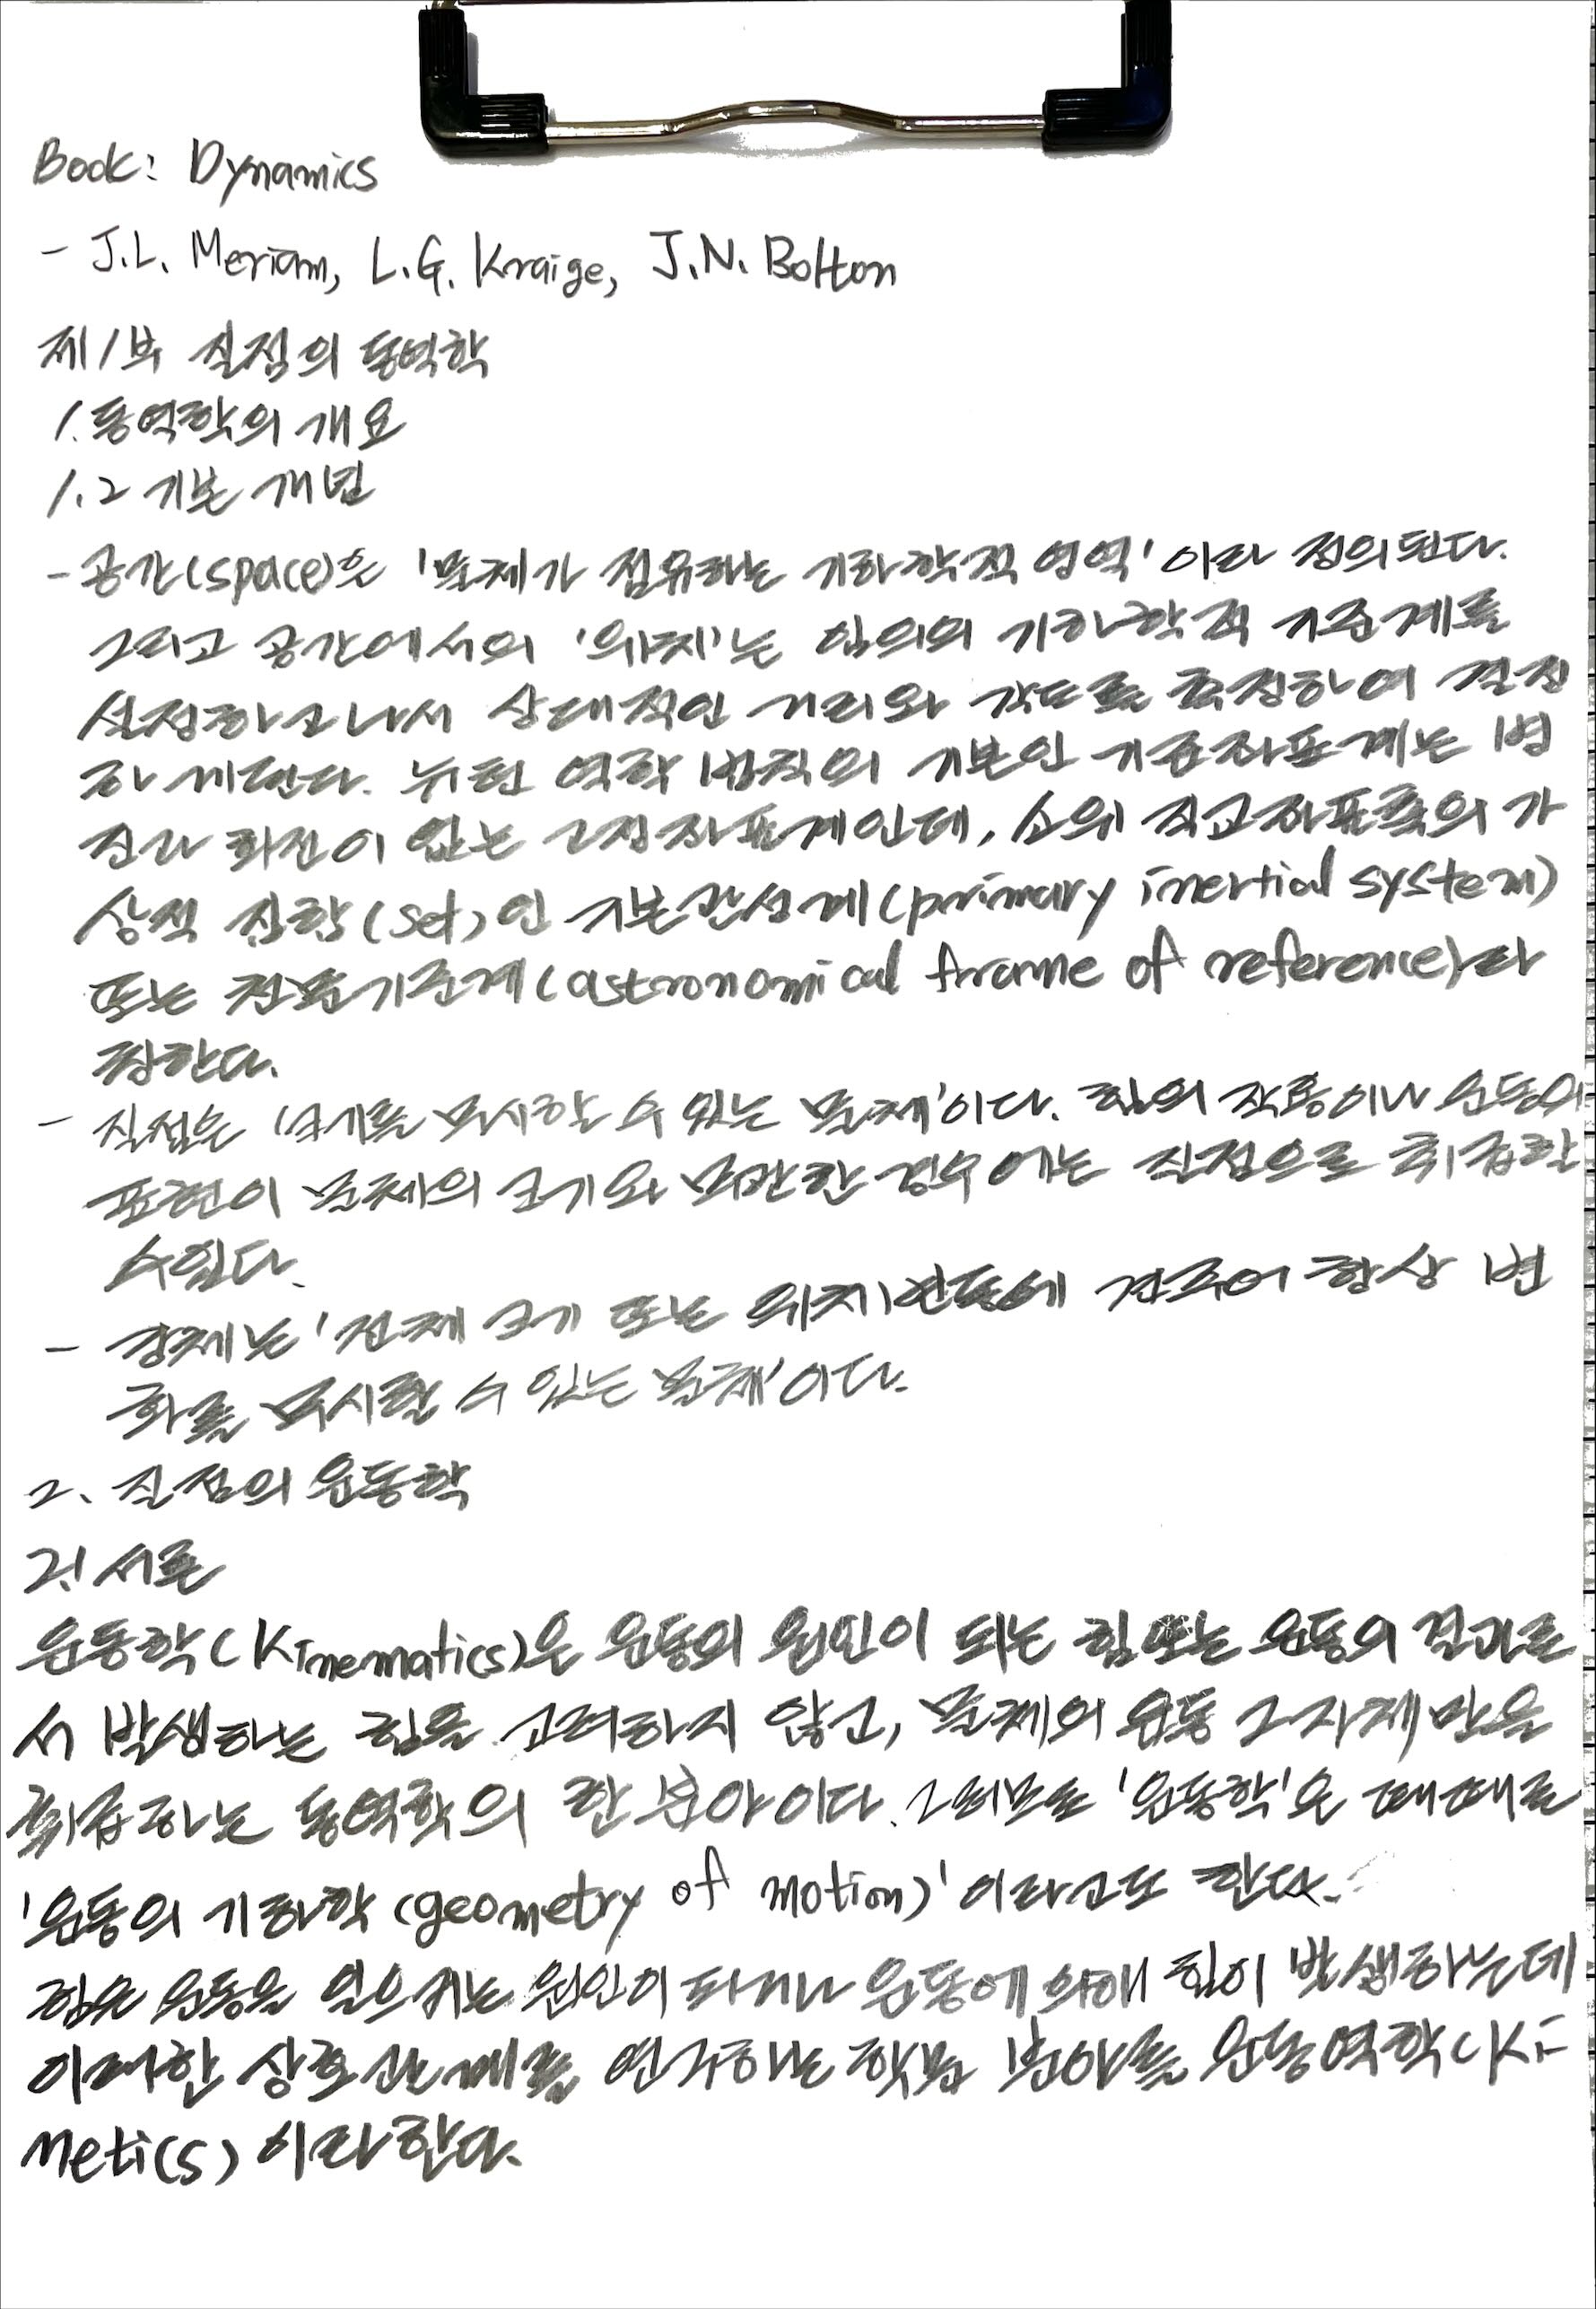 Book: Dynamics
- J.L. Meriam, L.G. Kraige, J.N. Bolton
제1부 질점의 동역학
1. 동역학의 개요
1.2 기본 개념
- 공간(space)은 '물체가 점유하는 기하학적 영역'이라 정의된다.
그리고 공간에서의 '위치'는 임의의 기하학적 기준계를
설정하고나서 상대적인 거리와 각도를 측정하여 결정
하게된다. 뉴턴 역학 법칙의 기본인 기준좌표계는 병
진과 회전이 없는 고정좌표계인데, 소위 직교좌표축의 가
상적 집합(set)인 기본관성계(primary inertial system)
또는 천문기준계(astronomical frame of reference)라
칭한다.
- 질점은 '크기를 무시할 수 있는 물체'이다. 힘의 작용이나 운동의
표현이 물체의 크기와 무관한 경우에는 질점으로 취급할
수있다.
- 강체는 '전체 크기 또는 위치변동에 견주어 형상 변
화를 무시할 수 있는 물체'이다.
2. 질점의 운동학
2.1 서론
운동학(Kinematics)은 운동의 원인이 되는 힘 또는 운동의 결과로
서 발생하는 힘을 고려하지 않고, 물체의 운동 그 자체만을
취급하는 동역학의 한 분야이다. 그러므로 '운동학'은 때때로
'운동의 기하학(geometry of motion)'이라고도 한다.
힘은 운동을 일으키는 원인이 되거나 운동에 의해 힘이 발생하는데
이러한 상호관계를 연구하는 학문 분야를 운동역학(Ki-
netics)이라 한다.